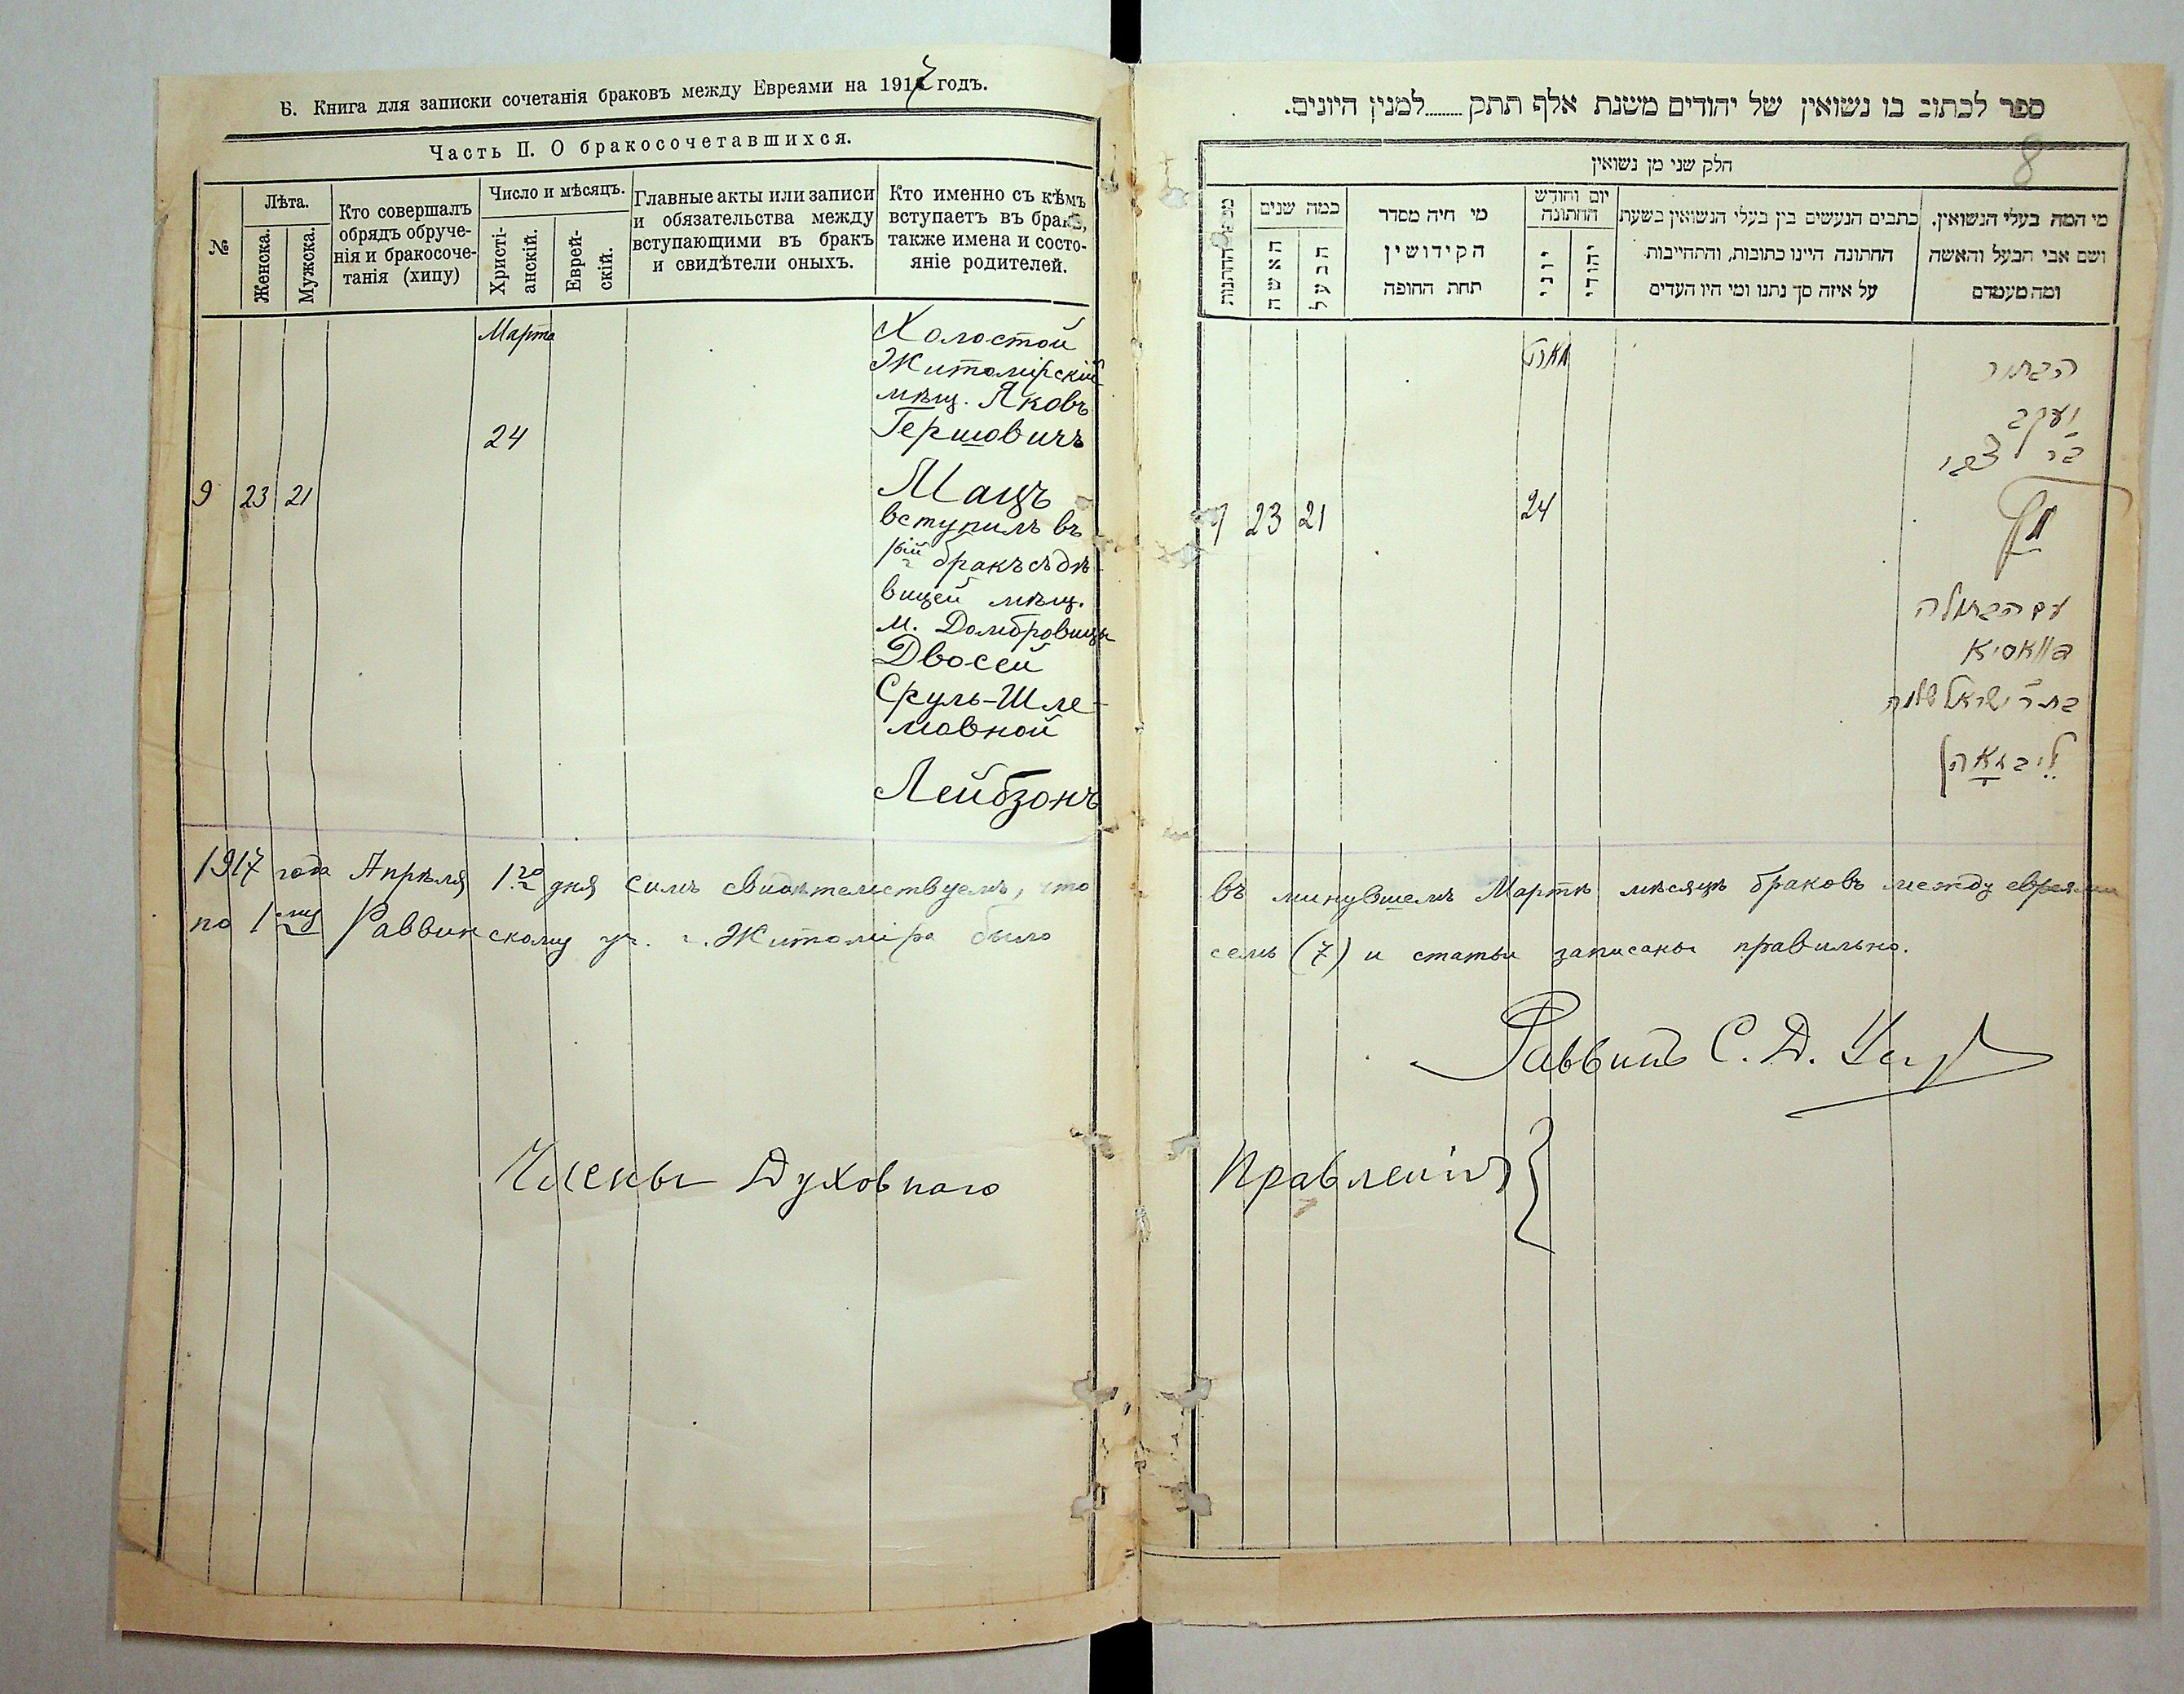 Б. Книга для записки сочетанія браковъ между Евреями на 1917 годъ.
Часть II. О бракосочетавшихся.
№
Лѣта.
Женска.
Мужска.
Кто совершалъ
обрядъ обруче-
нія и бракосоче-
танія (хипу)
Число и мѣсяцъ.
Христі-
анскій.
Еврей-
скій.
Главные акты или записи
и обязательства между
вступающими въ бракъ
и свидѣтели оныхъ.
Кто именно съ кѣмъ
вступаетъ въ бракъ,
также имена и состо-
яніе родителей.
Марта
24
9 23 21
Холостой
Житомірскій
мѣщ. Яковъ
Гершовичъ
Мацъ
вступилъ въ
1ый бракъ съ дѣ-
вицей мѣщ.
м. Домбровицы
Двосей
Сруль-Шле-
мовной
Лейбзонъ
1917 года Апрѣля 1го дня симъ свидѣтельствуемъ, что
по 1му Раввинскому уч. г. Житоміра было
Члены Духовнаго
ספר לכתוב בו נשואין של יהודים משנת אלף תתק........למנין היונים.
8
חלק שני מן נשואין
כמה שנים
האשה
הבעל
מי היה מסדר
הקידושין
תחת החופה
יום וחודש
החתונה
יוני
יהודי
כתבים הנעשים בין בעלי הנשואין בשעת
החתונה היינו כתובות, והתחייבות
על איזה סך נתנו ומי היו העדים
מי המה בעלי הנשואין,
ושם אבי הבעל והאשה
ומה מעמדם
מארט
24
23 21
הבחור
יעקב
בר צבי
מץ
עם הבתולה
דוואסיא
בת ר' ישראל שלמה
לייבזאהן
въ минувшемъ Мартѣ мѣсяцѣ браковъ между евреями
семь (7) и статьи записаны правильно.
Раввинъ С. Д.
Правленія